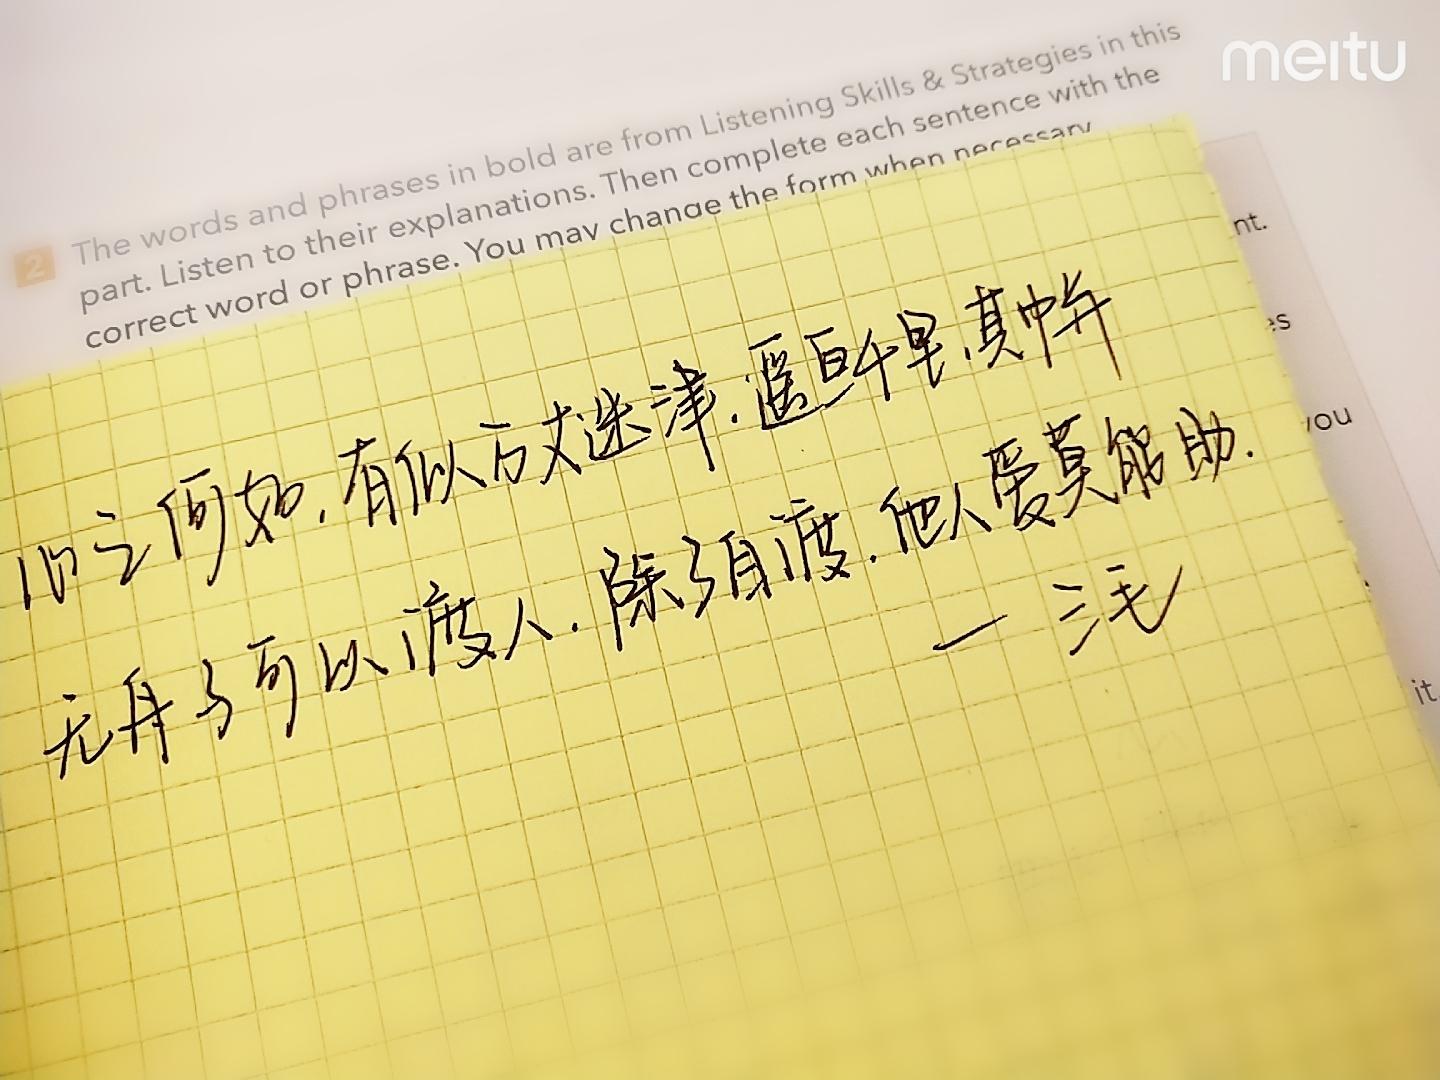 meitu
2 The words and phrases in bold are from Listening Skills & Strategies in this
part. Listen to their explanations. Then complete each sentence with the
correct word or phrase. You may change the form when necessary
nt.
es
you
it
心之何如,有似万丈迷津.遥亘千里,其中并
无舟子可以渡人.除了自渡.他人爱莫能助.
一三毛